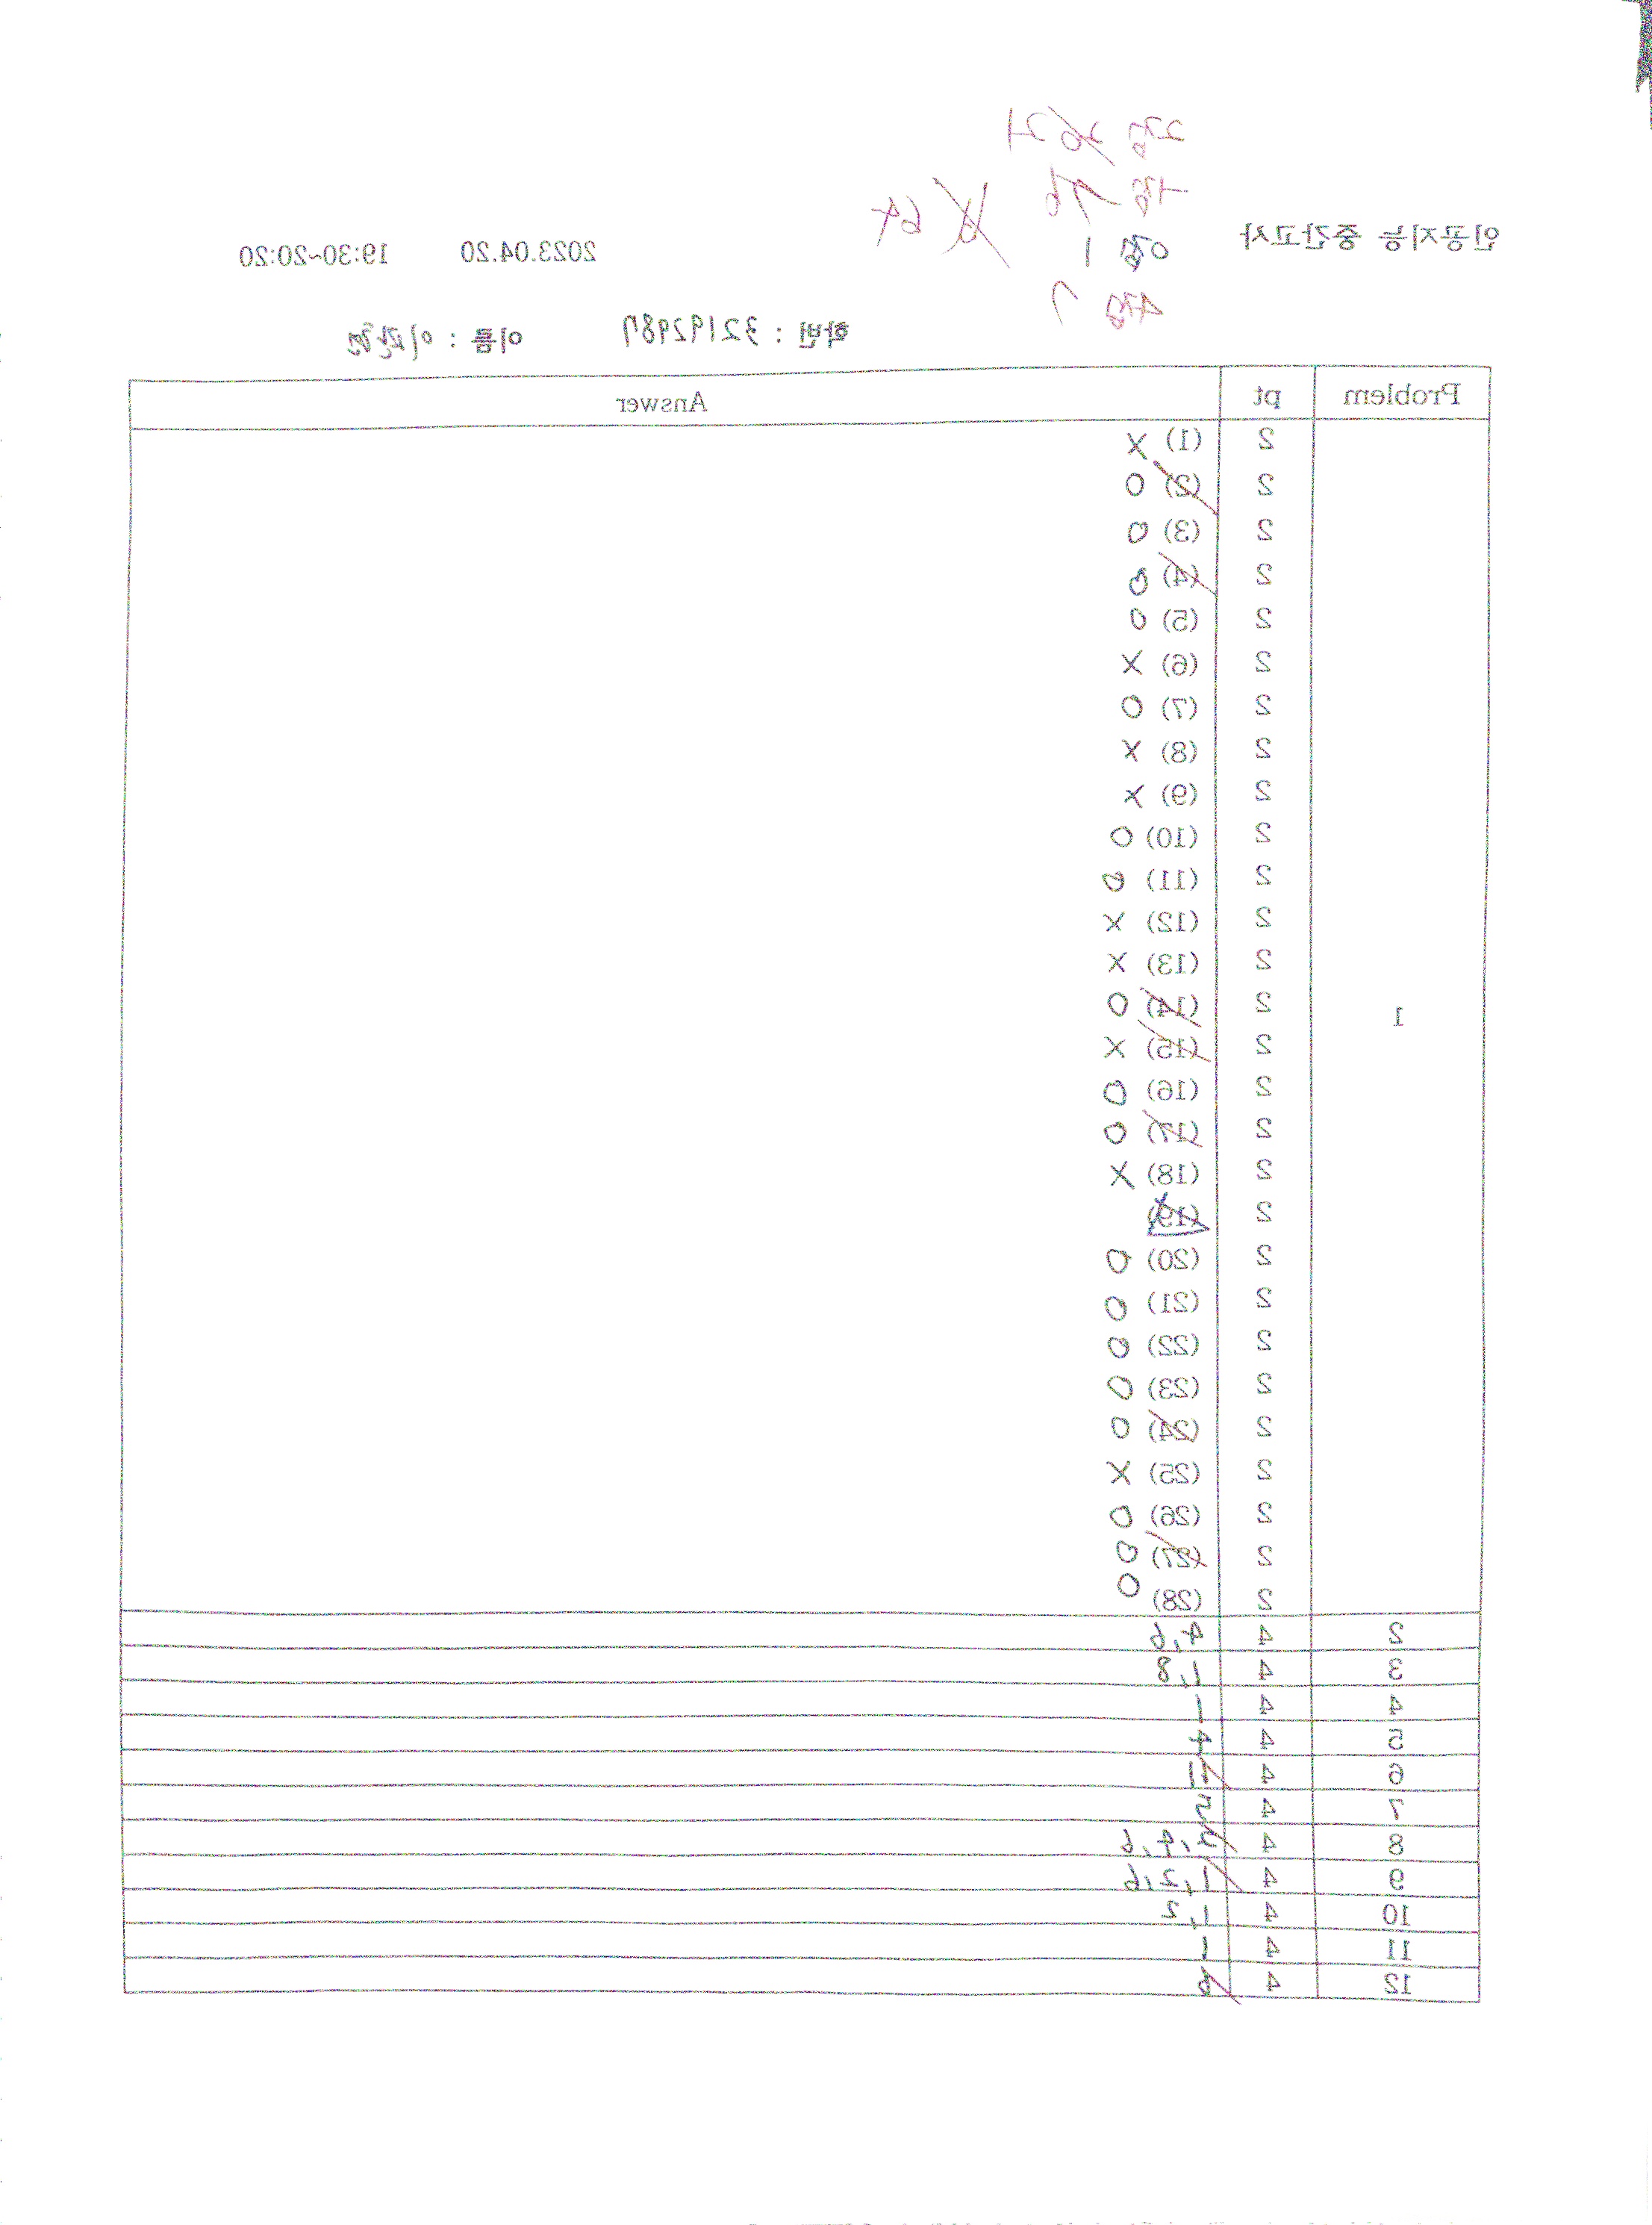 인공지능 중간고사 2023.04.20 19:30~20:20
2점
1점
0점 1
4점
64
학번 : 32192987 이름 :
Problem pt Answer
1
2 (1) X
2 (2) O
2 (3) O
2 (4) O
2 (5) O
2 (6) X
2 (7) O
2 (8) X
2 (9) X
2 (10) O
2 (11) O
2 (12) X
2 (13) X
2 (14) O
2 (15) X
2 (16) O
2 (17) O
2 (18) X
2 (19)
2 (20) O
2 (21) O
2 (22) O
2 (23) O
2 (24) O
2 (25) X
2 (26) O
2 (27) O
2 (28) O
2 4 4,6
3 4 1,8
4 4 1
5 4 4
6 4
7 4 5
8 4 2,4,6
9 4 1,2,6
10 4 1,2
11 4 1
12 4 6